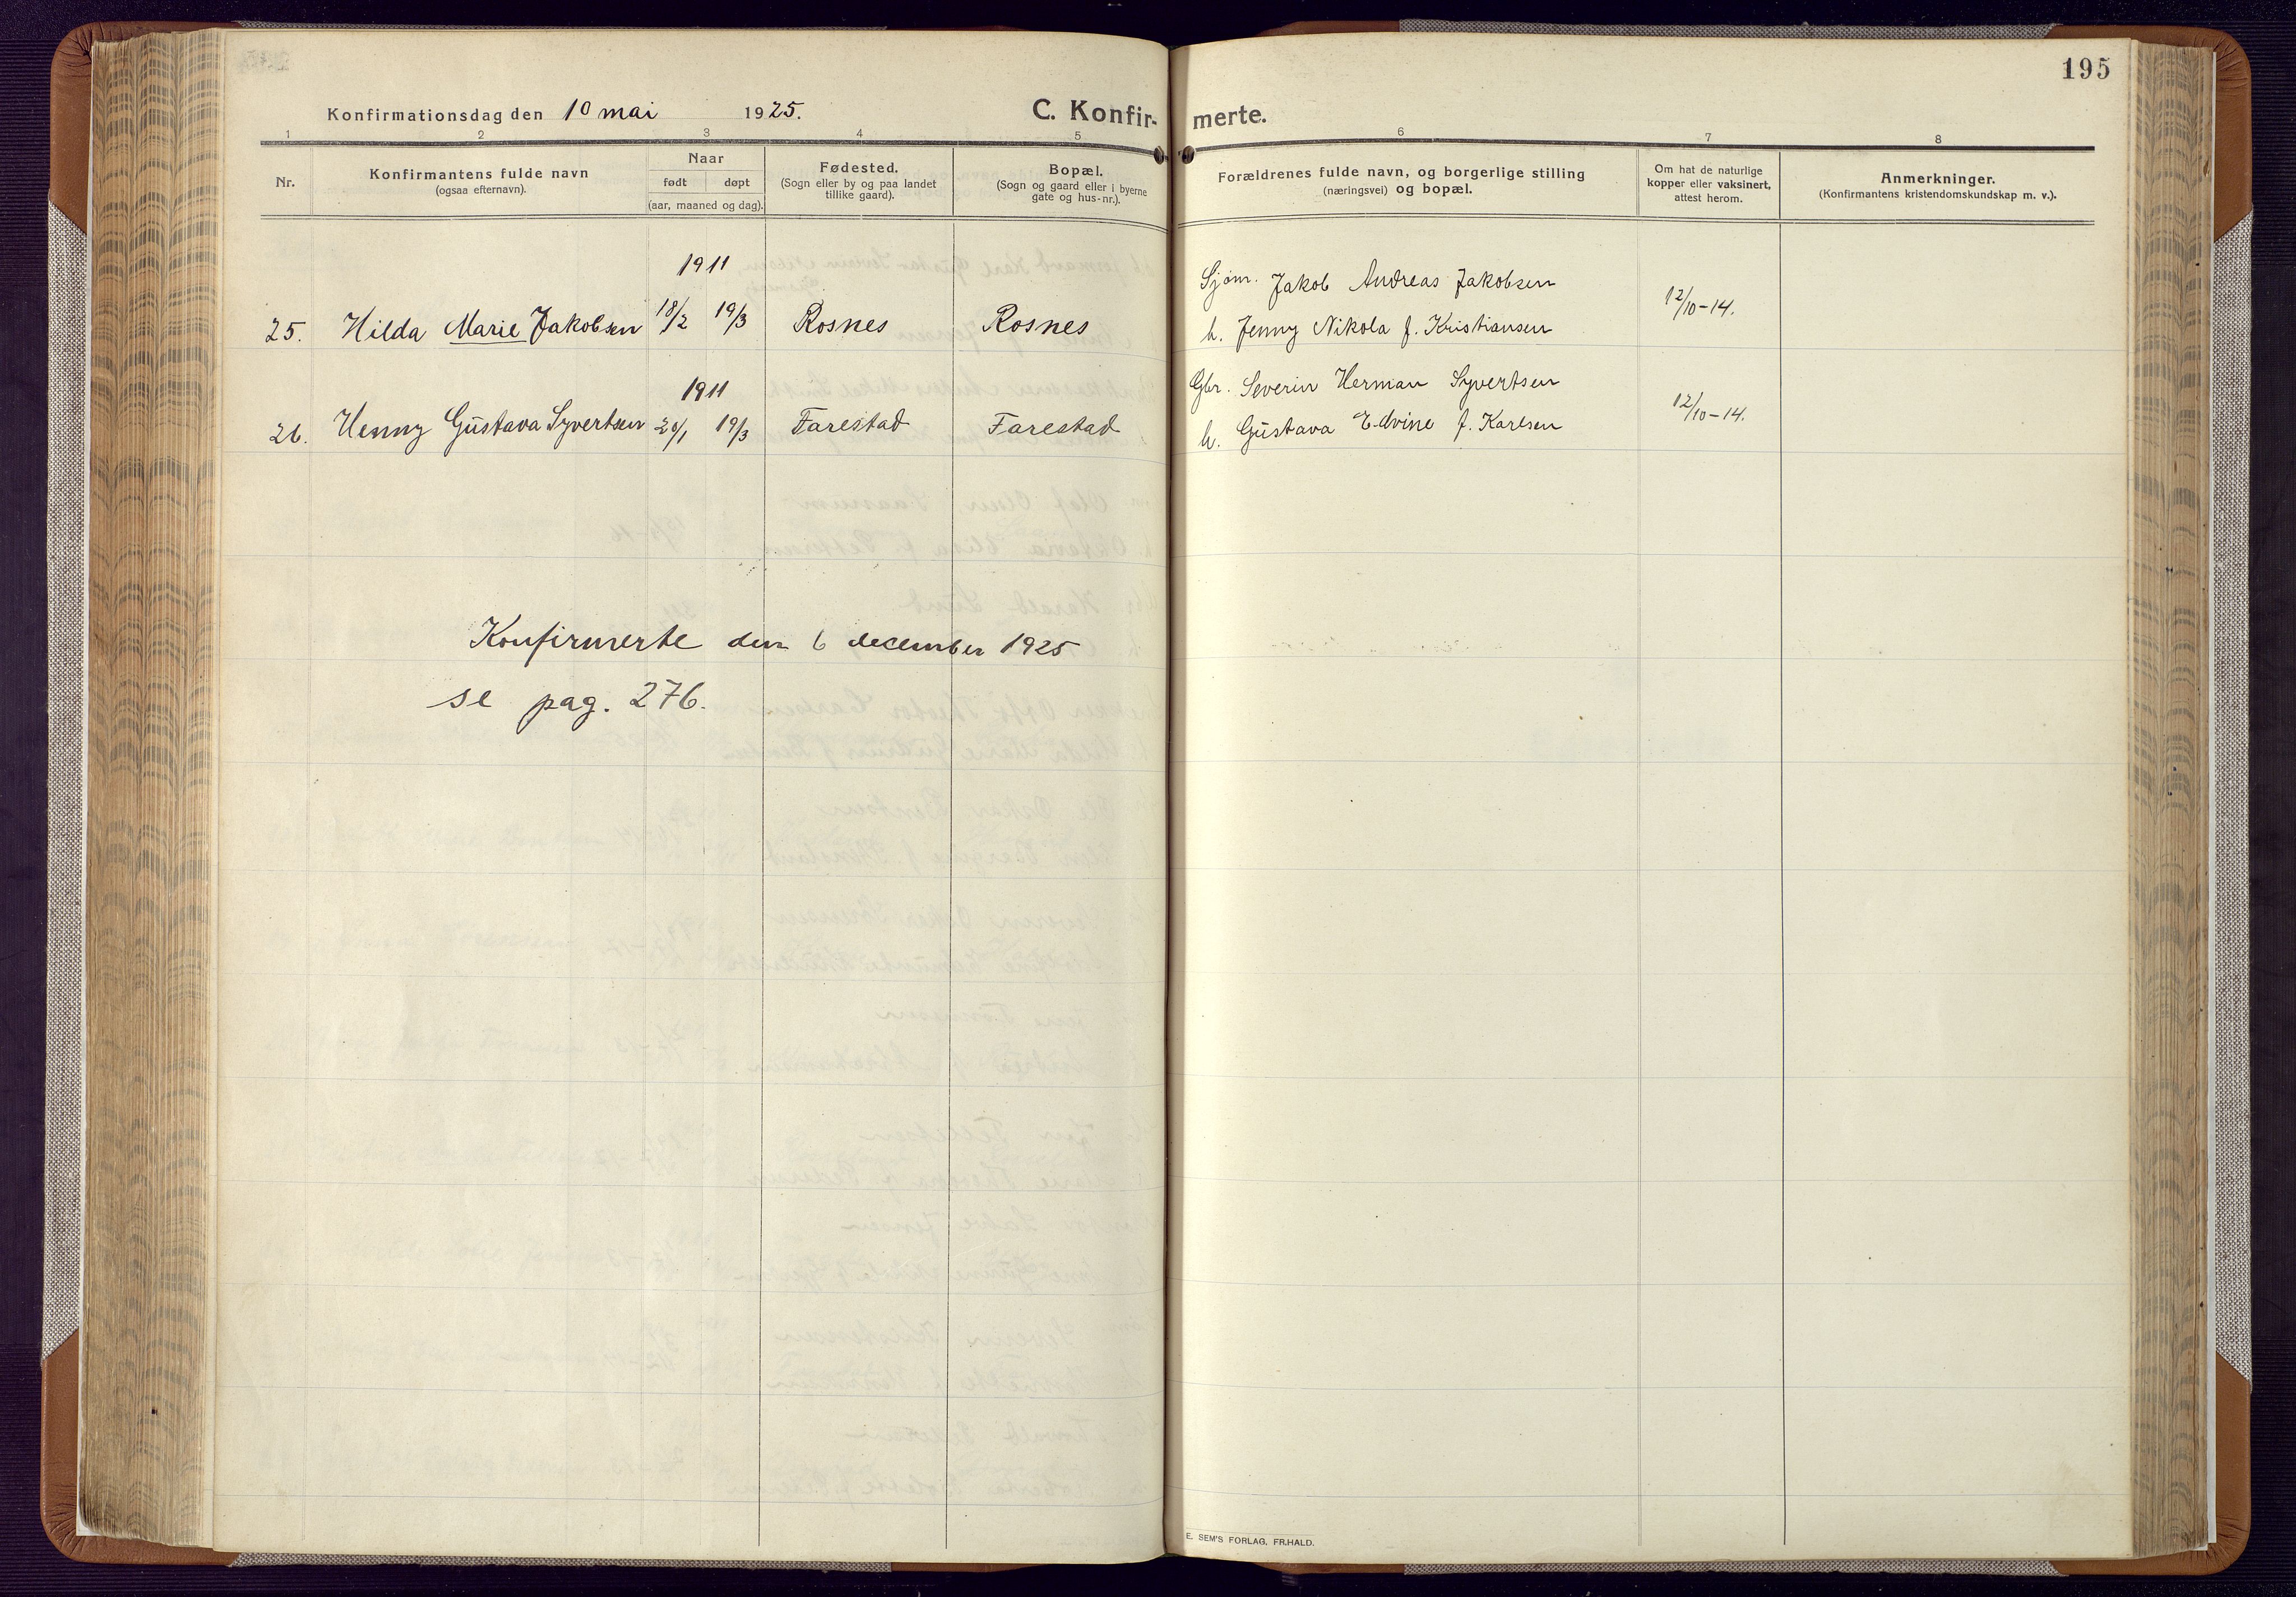 195
Konfirmationsdag den 10 mai 1925.
C. Konfir-
merte.
1 2 3 4 5 6 7 8
Nr.
Konfirmantens fulde navn
(ogsaa efternavn).
Naar
født døpt
(aar, maaned og dag).
Fødested.
(Sogn eller by og paa landet
tillike gaard).
Bopæl.
(Sogn og gaard eller i byerne
gate og hus-nr.).
Forældrenes fulde navn, og borgerlige stilling
(næringsvei) og bopæl.
Om hat de naturlige
kopper eller vaksinert,
attest herom.
Anmerkninger.
(Konfirmantens kristendomskundskap m. v.).
1911
Sjøm. Jakob Andreas Jakobsen
25. Hilda Marie Jakobsen 18/2 19/3 Rosnes Rosnes
h. Jenny Nikola f. Kristiansen
12/10-14.
1911
Gbr. Severin Herman Syvertsen
26. Henny Gustava Syvertsen 20/1 19/3 Farestad Farestad
h. Gustava Edvine f. Karlsen
12/10-14.
Konfirmerte den 6 december 1925
se pag. 276.
E. SEM'S FORLAG, FR.HALD.